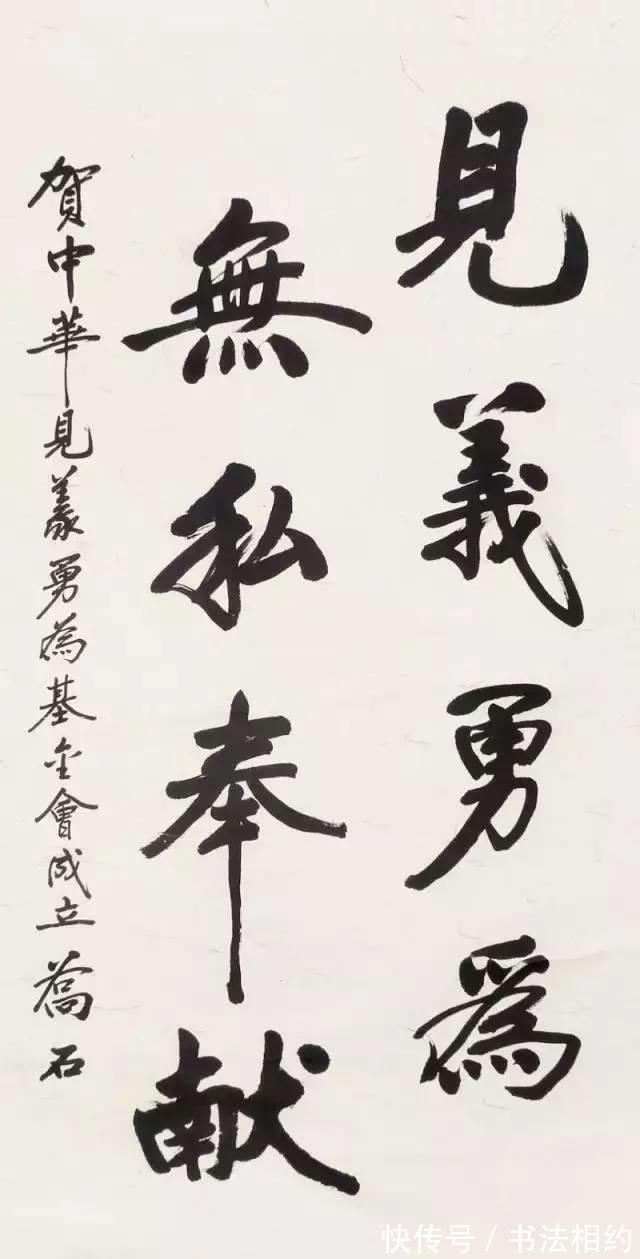 見義勇為
無私奉献
賀中華見義勇為基金會成立 喬石
快传号／书法相约